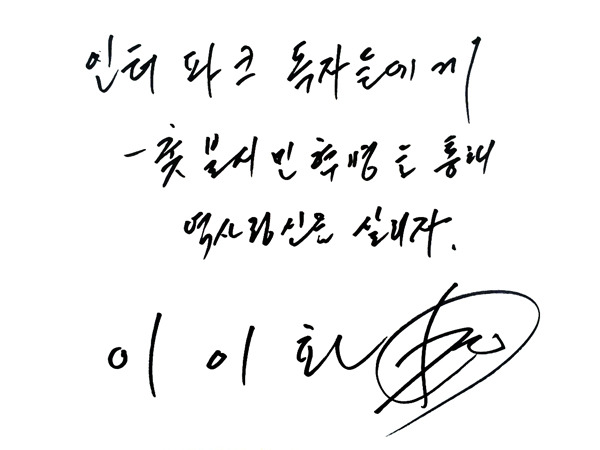 인터파크 독자들에게
- 촛불시민혁명을 통해
역사정신을 살리자.
이이화